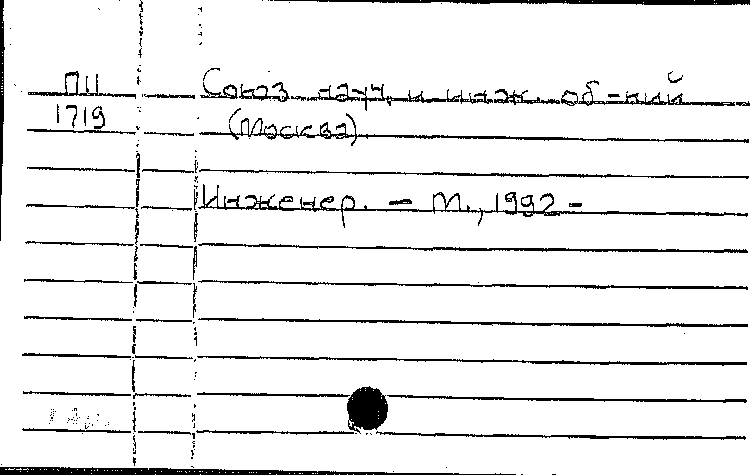 П11
1719
Союз науч. и инж. об-ний
(Москва).
Инженер. – М., 1992 –